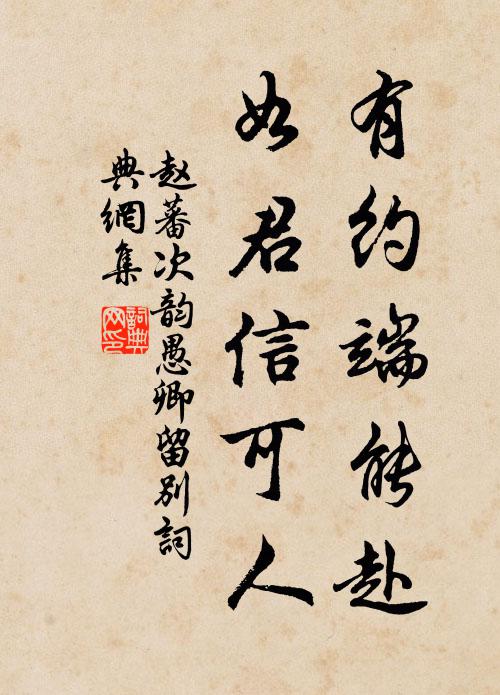 有约端能赴
如君信可人
赵蕃次韵愚卿留别詞
典網集
詞典
网印